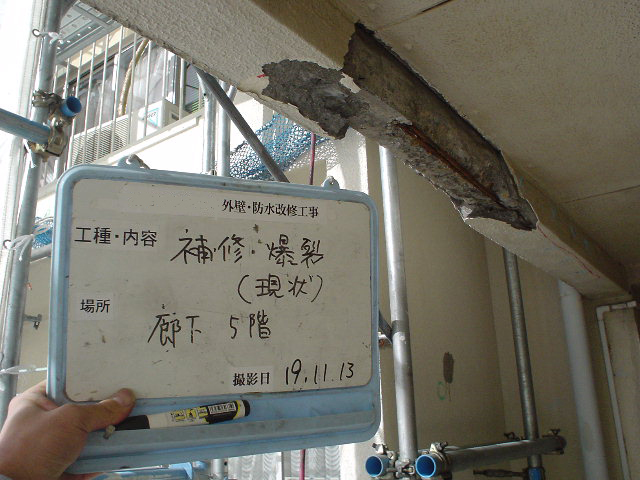 外壁・防水改修工事
工種・内容 補修・爆裂
(現状)
場所
廊下 5階
撮影日 19.11.13